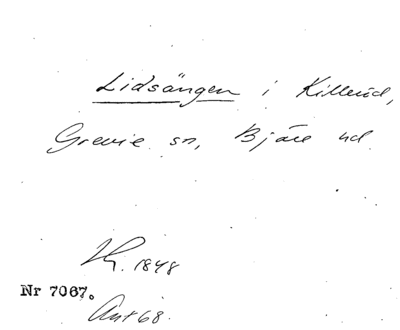 Lidsängen i Killeröd,
Grevie sn, Bjäre hd.
1848
Nr 7067.
Ant 68.